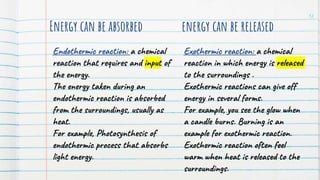 Energy can be absorbed
Endothermic reaction: a chemical
reaction that requires and input of
the energy.
The energy taken during an
endothermic reaction is absorbed
from the surroundings, usually as
heat.
For example, Photosynthesis of
endothermic process that absorbs
light energy.
energy can be released
Exothermic reaction: a chemical
reaction in which energy is released
to the surroundings .
Exothermic reactions can give off
energy in several forms.
For example, you see the glow when
a candle burns. Burning is an
example for exothermic reaction.
Exothermic reaction often feel
warm when heat is released to the
surroundings.